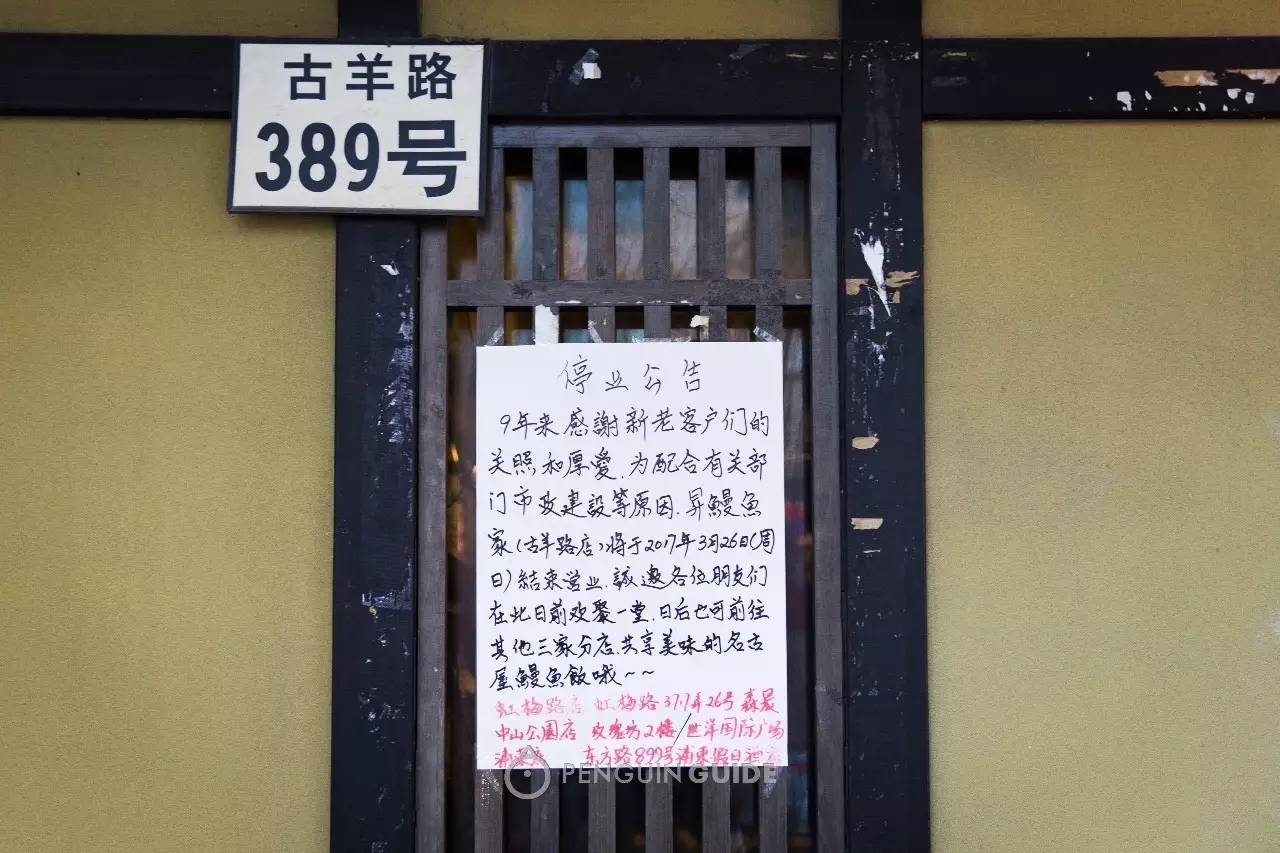 古羊路
389号
停业公告
9年来感謝新老客户们的
关照和厚愛.为配合有关部
门市政建設等原因.昇鰻魚
家(古羊路店)将于2017年3月26日(周
日)結束営业.誠邀各位朋友们
在此日前欢聚一堂.日后也可前往
其他三家分店.共享美味的名古
屋鰻魚飯哦~~
虹梅路店 虹梅路3717弄26号 森晟
中山公園店 玫瑰坊2楼/世洋国际广场
浦東店 东方路899号浦東假日酒店
PENGUIN GUIDE